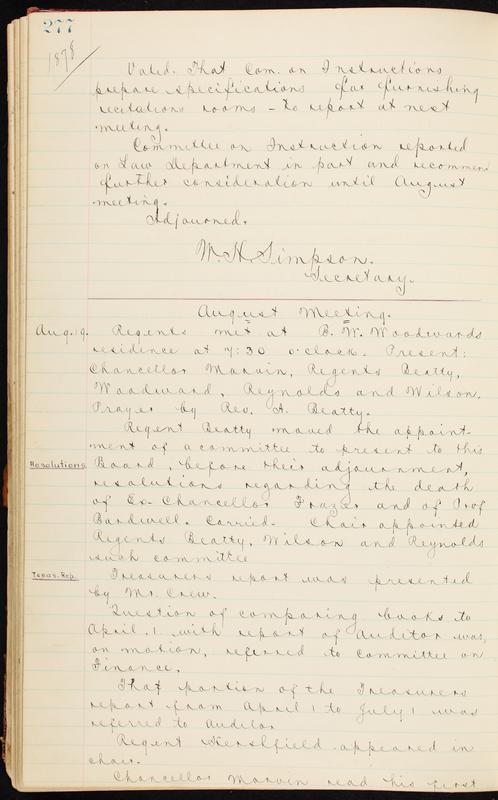 277
1878
Voted. That Com. on Instructions
prepare specifications for furnishing
recitations rooms - to report at next
meeting.
Committee on Instruction reported
on Law Department in part and recommend
further consideration until August
meeting.
Adjourned.
W. H. Simpson.
Secretary.
August Meeting.
Aug. 19. Regents met at B. W. Woodwards
residence at 7:30 o'clock. Present:
Chancellor Marvin, Regents Beatty,
Woodward, Reynolds and Wilson.
Prayer by Rev. A. Beatty.
Regent Beatty moved the appoint-
ment of a committee to present to this
Resolutions Board, before their adjournment,
resolutions regarding the death
of Ex-Chancellor Frazer and of Prof
Bardwell. Carried. Chair appointed
Regents Beatty, Wilson and Reynolds
such committee
Treas. Rep. Treasurers report was presented
by Mr. Crew.
Question of comparing books to
April. 1 with report of Auditor was,
on motion, referred to Committee on
Finance.
That portion of the Treasurers
report from April 1 to July 1 was
referred to Auditor
Regent Hershfield appeared in
chair.
Chancellor Marvin read his first